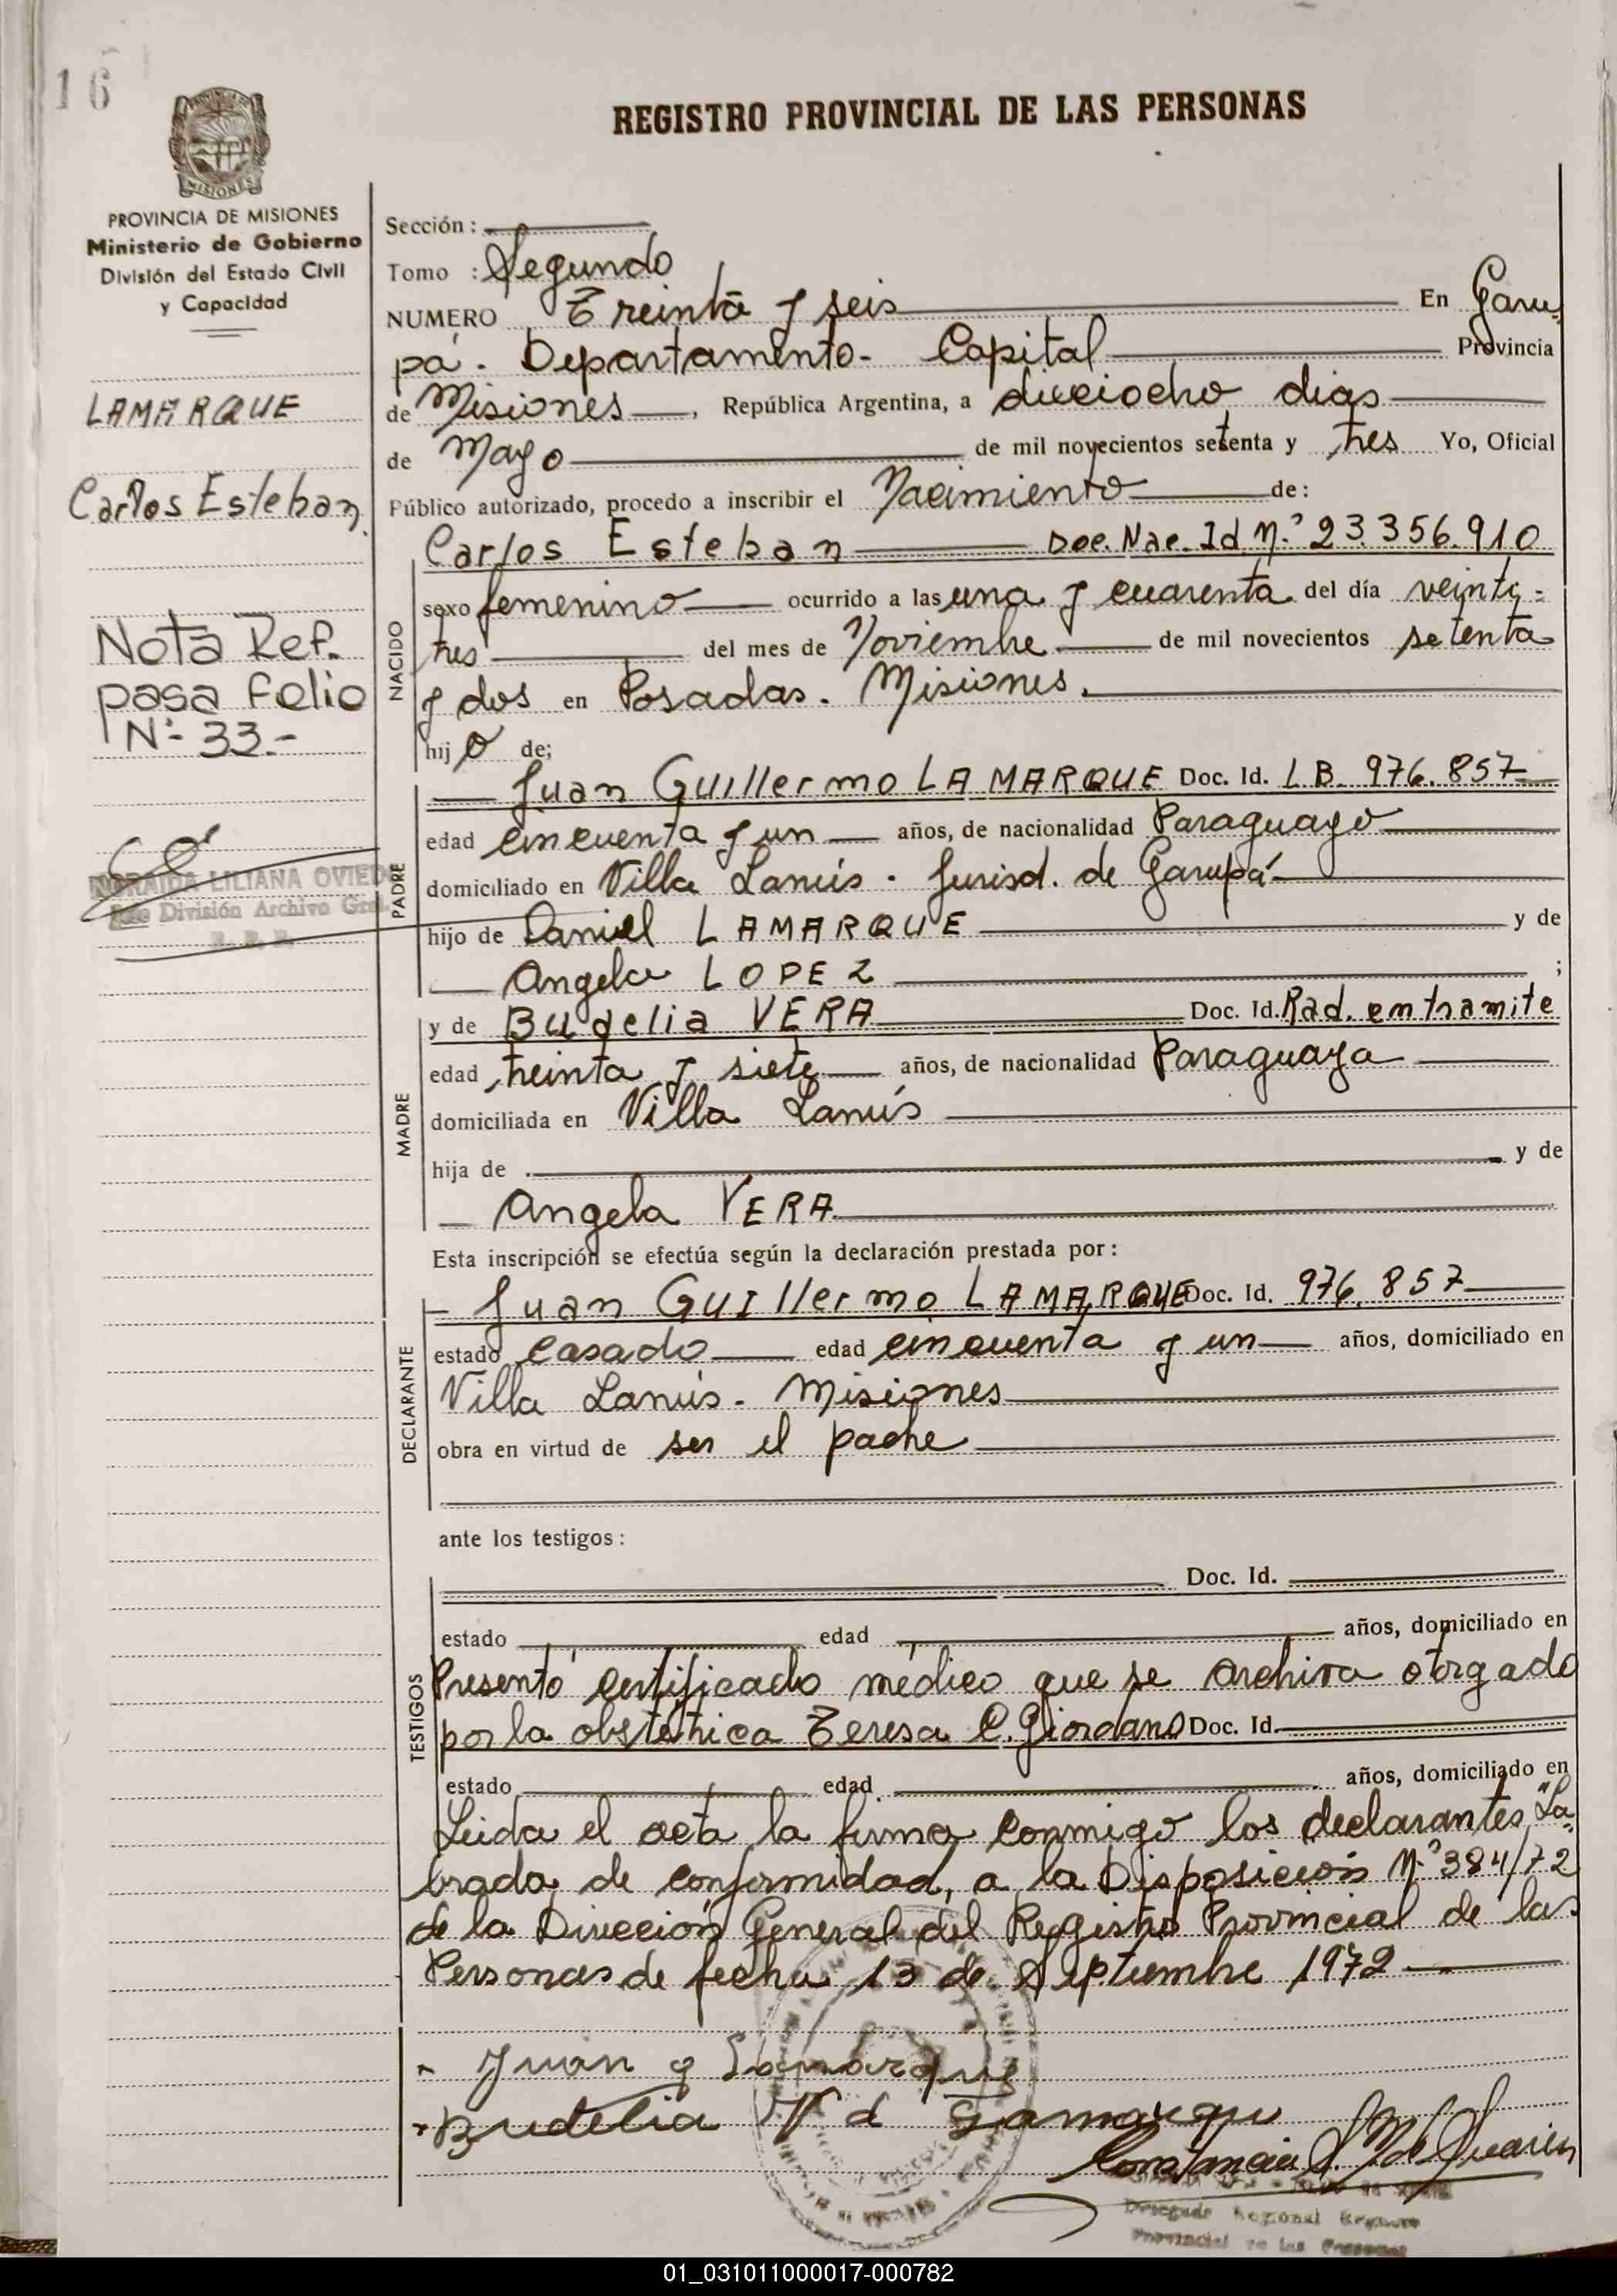 16
REGISTRO PROVINCIAL DE LAS PERSONAS
MISIONES
PROVINCIA DE MISIONES
Ministerio de Gobierno
División del Estado Civil
y Capacidad
LAMARQUE
Carlos Esteban
Nota Ref.
pasa Folio
Nº 33.-
LILIANA OVIEDO
División Archivo Gral.
Sección :
Tomo : Segundo
NUMERO Treinta y seis En Garu-
pá. Departamento - Capital Provincia
de Misiones, República Argentina, a dieciocho dias
de Mayo de mil novecientos setenta y tres Yo, Oficial
Público autorizado, procedo a inscribir el Nacimiento de:
Carlos Esteban Doc. Nac. Id Nº 23.356.910
NACIDO
sexo femenino ocurrido a las una y cuarenta del día veinti-
tres del mes de Noviembre de mil novecientos setenta
y dos en Posadas. Misiones.
hijo de;
PADRE
Juan Guillermo LAMARQUE Doc. Id. L B. 976.857
edad cincuenta y un años, de nacionalidad Paraguayo
domiciliado en Villa Lanús. Jurisd. de Garupá
hijo de Daniel LAMARQUE y de
Angela LOPEZ ;
MADRE
y de Budelia VERA Doc. Id. Rad. en tramite
edad treinta y siete años, de nacionalidad Paraguaya
domiciliada en Villa Lanús
hija de y de
Angela VERA
Esta inscripción se efectúa según la declaración prestada por:
DECLARANTE
Juan Guillermo LAMARQUE Doc. Id. 976.857
estado casado edad cincuenta y un años, domiciliado en
Villa Lanús - Misiones
obra en virtud de ser el padre
ante los testigos:
TESTIGOS
Doc. Id.
estado edad años, domiciliado en
Presentó certificado médico que se archiva otorgado
por la obstetrica Teresa C. Giordano Doc. Id.
estado edad años, domiciliado en
Leida el acta la firma conmigo los declarantes "La-
brada de conformidad, a la Disposición Nº 384/72
de la Dirección General del Registro Provincial de las
Personas de fecha 13 de Septiembre 1972
Juan g Lamarque
Budelia V d Lamarque
Delegada Regional Registro
Provincial de las Personas
01_031011000017-000782